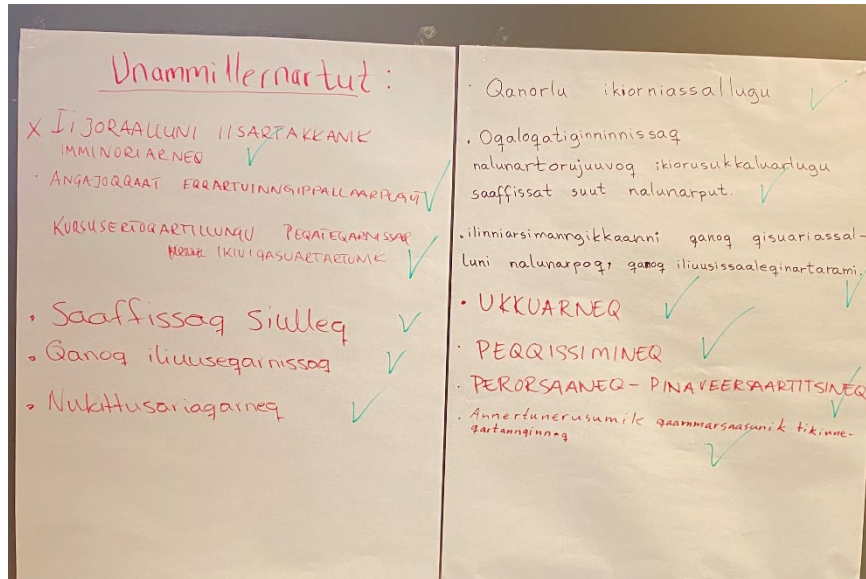 Unammillernartut:
X IIJORAALLUNI IISARTAKKANIK
IMMINORIARNEQ
· ANGAJOQQAAT EQQARTUINNGIPPALLAARPUGUT
KURSUSERTOQARTILLUNGU PEQATEQARNISSAQ
IKIUIQASUARTARTUNIK
• Saaffissaq siulleq
• Qanoq iliuuseqarnissaq
• Nukittusariaqarneq
· Qanorlu ikiorniassallugu
. Oqaloqatiginninnissaq
nalunartorujuuvoq ikiorusukkaluarlugu
saaffissat suut nalunarput.
. ilinniarsimanngikkaanni qanoq qisuariassal-
luni nalunarpoq, qanoq iliuusissaaleqinartarami.
• UKKUARNEQ
· PEQQISSIMINEQ
· PERORSAANEQ - PINAVEERSAARTITSINEQ
· Annertunerusumik qaammarsaasunik tikinne-
qartannginneq